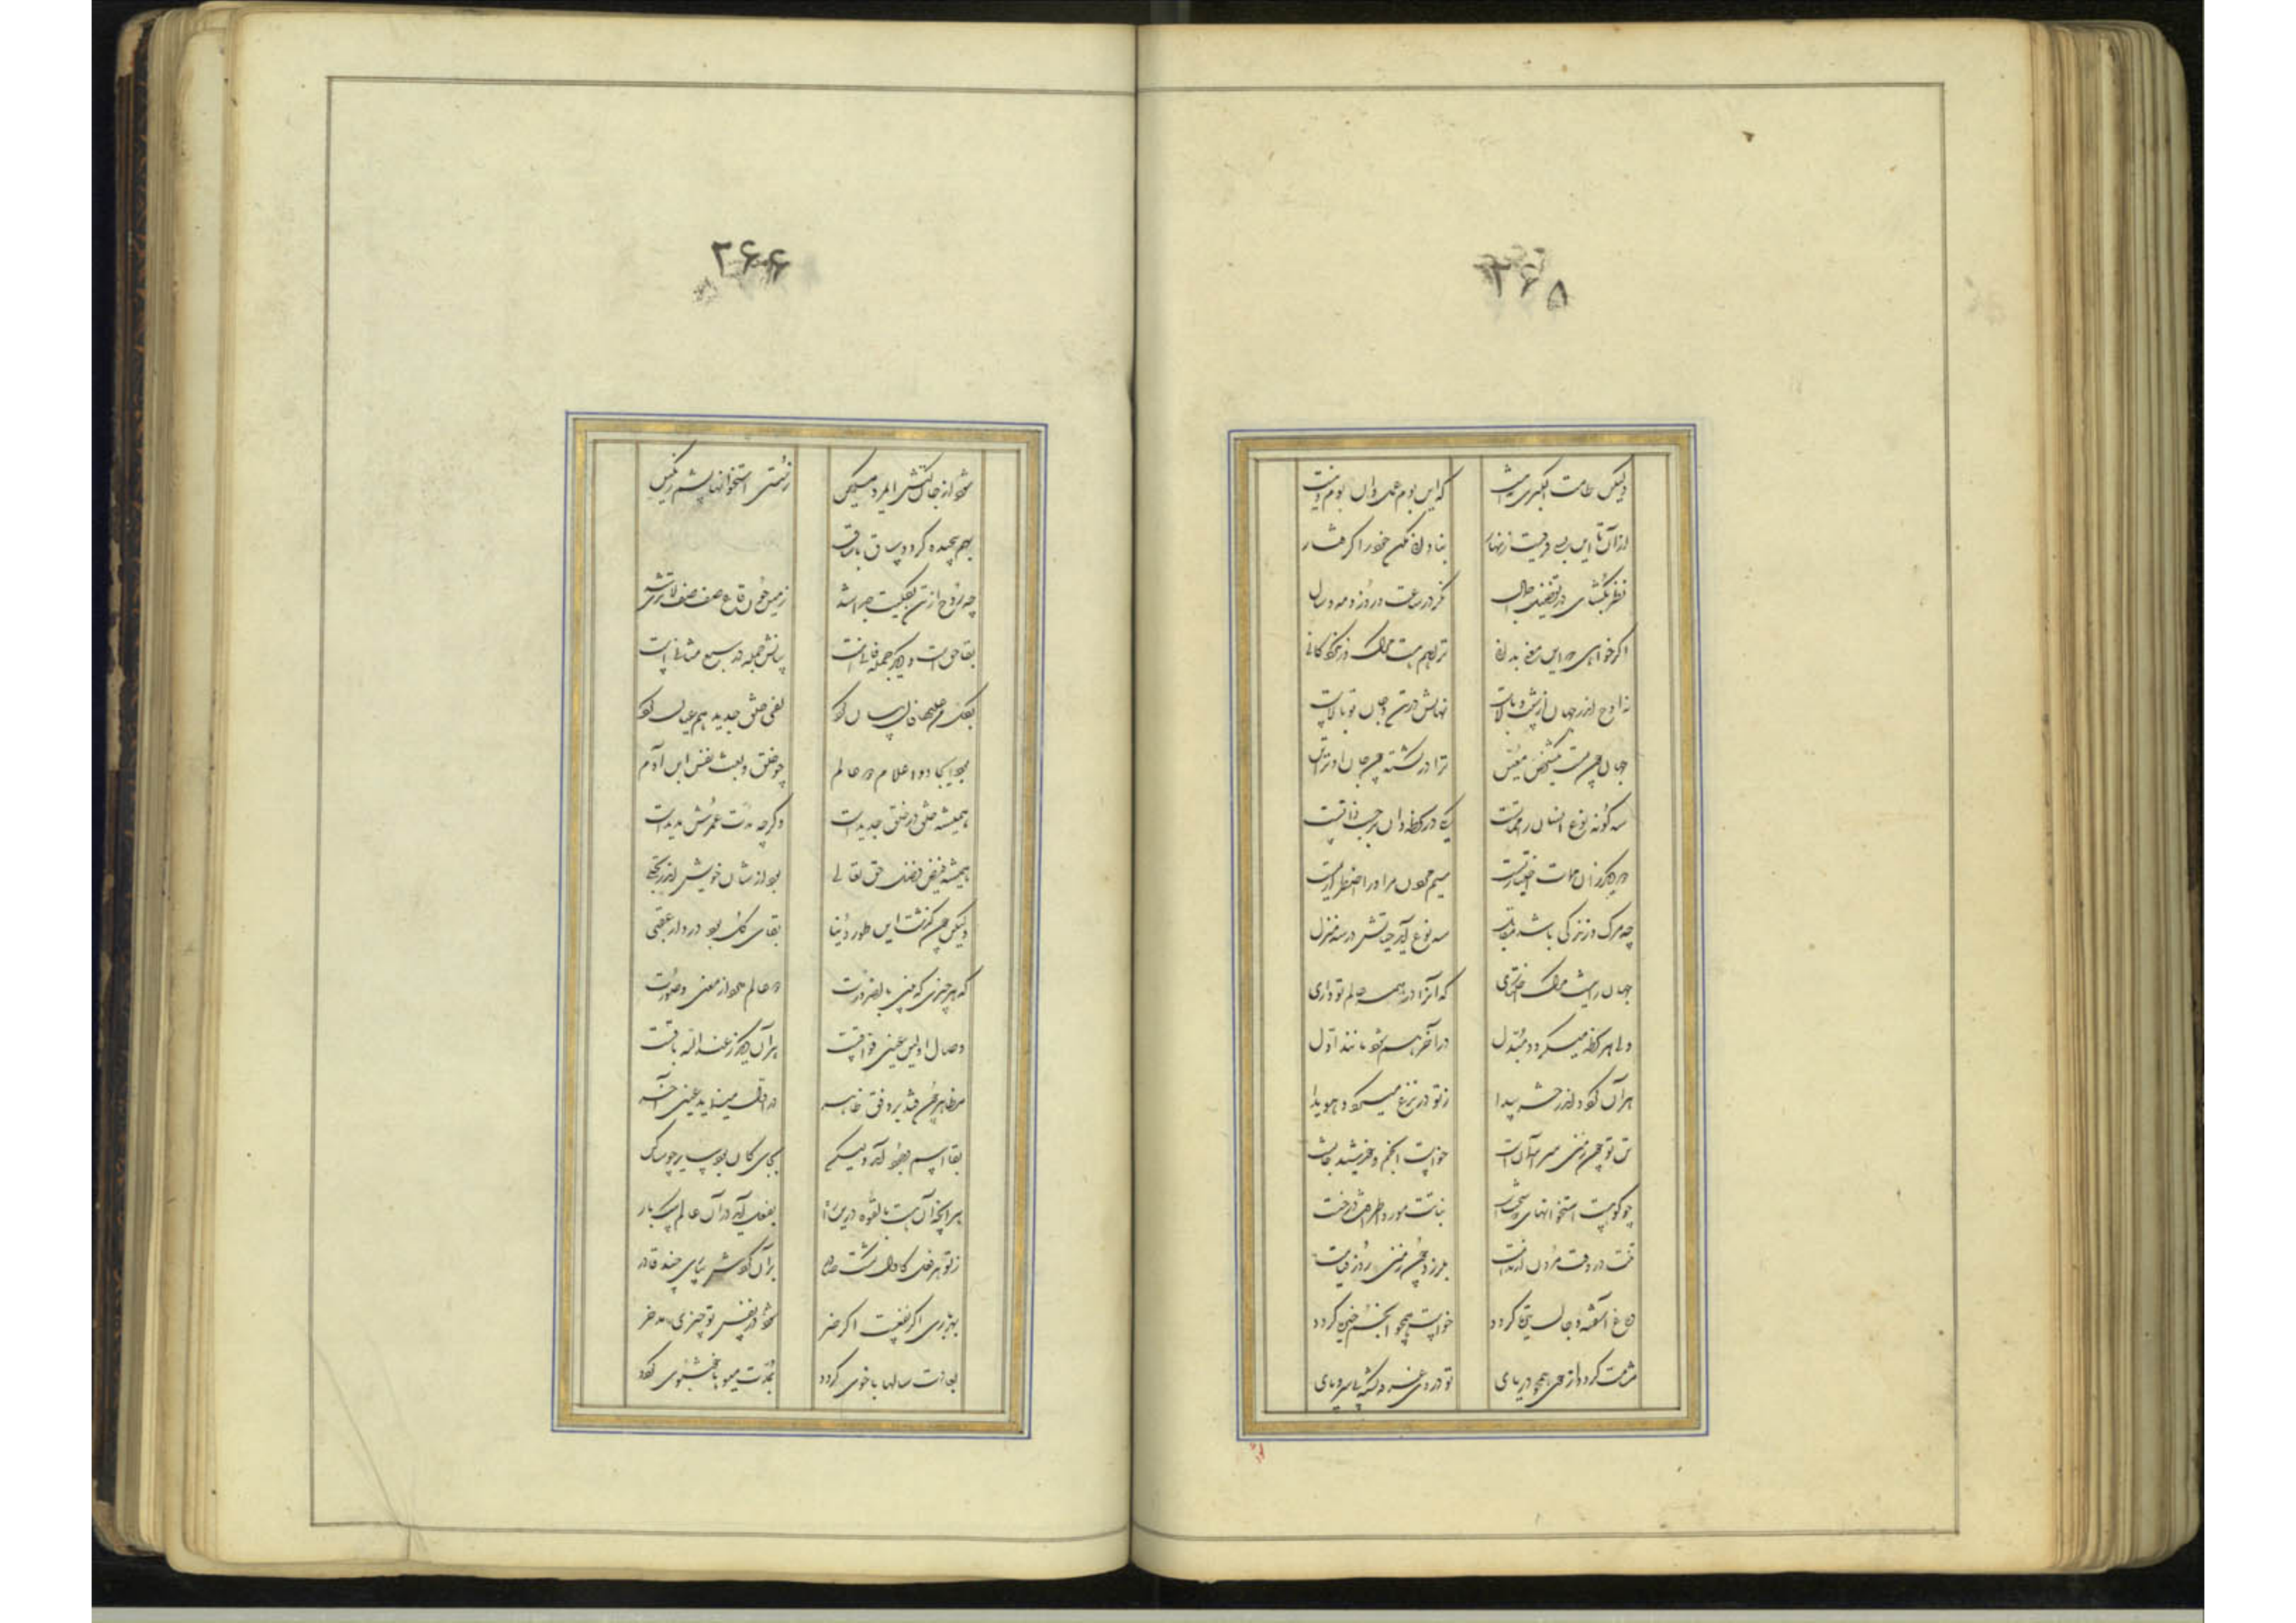 ۲۶۵
ولیکن طامت الکبری نه این است که این یوم عمل وان یوم دین است
از آن تا این بسی فرقست زنهار بنادانی مکن خود را گرفتار
نظر بگشای در تفصیل و اجمال نگر در ساعت و روز و مه و سال
اگر خواهی که این معنی بدانی ترا هم هست مرگ و زندگانی
جهان چون تست یک شخص معین
سه گونه نوع انسان را مماتست یکی در لحظه وان بر حسب ذاتست
دو دیگر زان ممات اختیاریست سیم مردن مر او را اضطراریست
چه مرگ و زندگی باشد مقابل سه نوع آمد حیاتش در سه منزل
جهان را نیست مرگ اختیاری که آنرا در همه عالم تو داری
ولی هر لحظه میگردد مبدل در آخر هم شود مانند اول
هر آن گردد اندر حشر پیدا ز تو در نزع میگردد هویدا
تن تو چون زمین سر آسمان است حواست انجم و خورشید جانست
چو کوهست استخوانهای سختست نباتت مو و اطرافت درختست
تنت در وقت مردن از ندامت بلرزد چون زمین روز قیامت
دماغ آشفته و جان تیره گردد حواست همچو انجم خیره گردد
مشامت گردد از خوی همچو دریای تو در وی غرقه گشته بی سر و پای
۲۶۶
شود از جان کنش ای مرد مسکین ز سستی استخوانها پشم رنگین
بهم پیچیده گردد ساق با ساق
چه روح از تن بکلیت جدا شد زمین چون قاع صفصف لاتری شد
بقا حق است و دیگر جمله فانیست بیانش جمله در سبع مثانیست
بکل من علیها فان بیان کرد لفی خلق جدید هم عیان کرد
بود ایجاد و اعدام دو عالم چو خلق و بعث نفس ابن آدم
همیشه خلق در خلق جدیدست و گرچه مدت عمرش مدیدست
همیشه فیض فضل حق تعالی بود از شان خویش اندر تجلی
ولیکن چون گذشت این طور دنیا بقای کل بود در دار عقبی
که هر چیزی که بینی بالضرورت دو عالم دارد از معنی و صورت
وصال اولین عین فراقست مر آن دیگر ز عند الله باقست
مظاهر چون فتد بر وفق ظاهر در اول مینماید عین آخر
بقا اسم وجود آمد ولیکن بجای کان بود سایر چو ساکن
هر آنچه آن هست بالقوه درین دار بفعل آید در آن عالم بیکبار
ز تو هر فعل کاول گشت ظاهر بر آن گردی بباری چند قادر
بهر باری اگر نفعست اگر ضر شود در نفس تو چیزی مدخر
بعادت سالها با خوی گردد بمدت میوها خوشبوی گردد